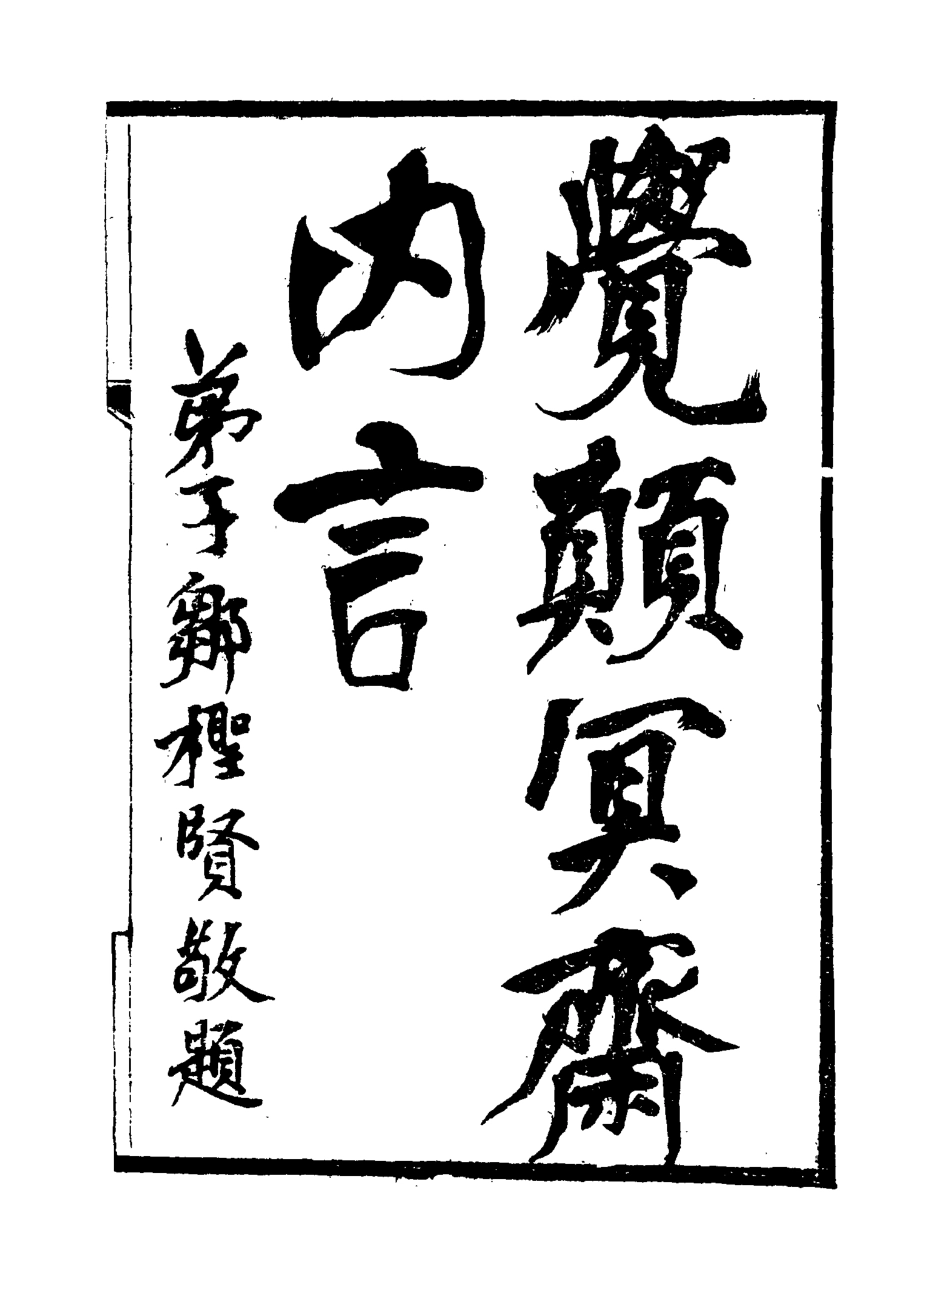 覺顛冥齋
內言
弟子鄒檉賢敬題